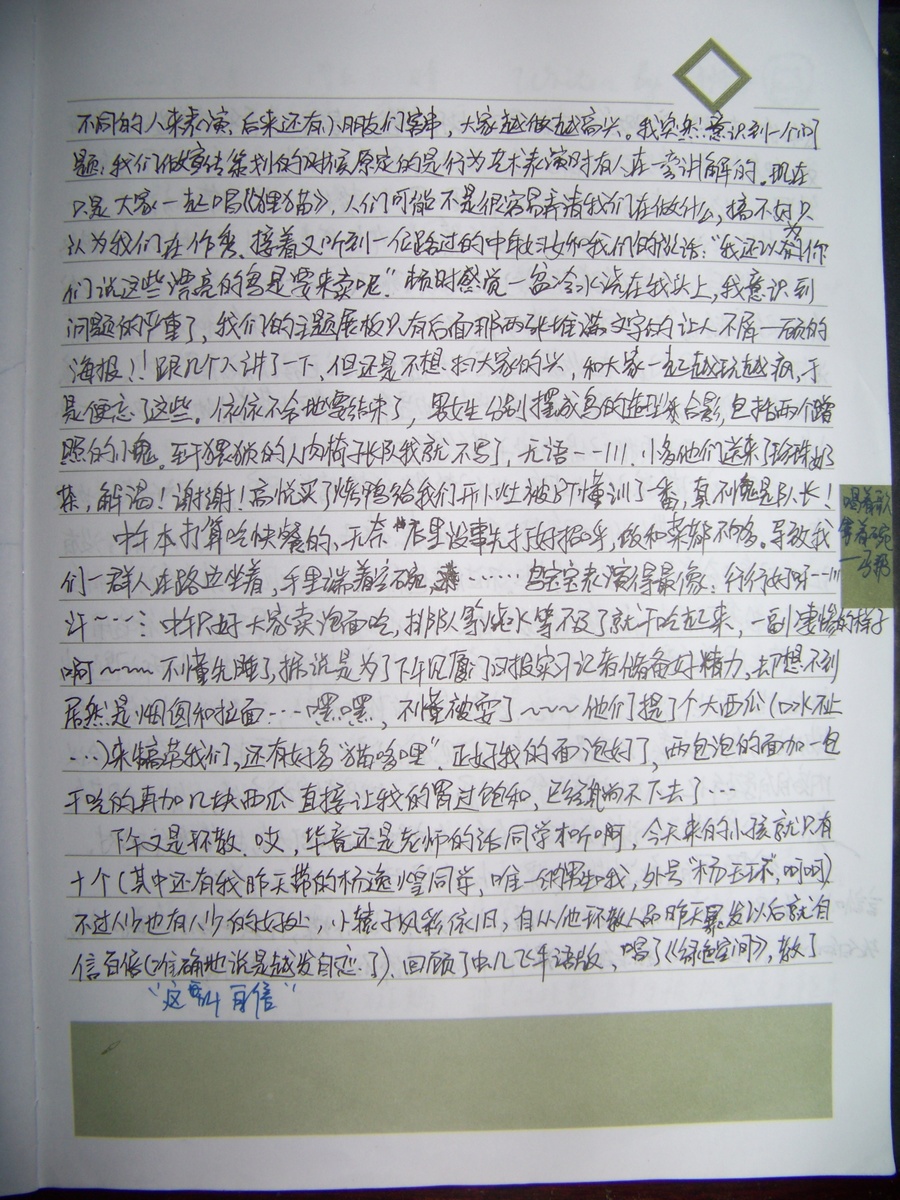 不同的人来表演、后来还有小朋友们客串，大家越做越高兴。我突然意识到一个问
题，我们做宣传策划的时候原定的是行为艺术表演时有人在一旁讲解的。现在
只是大家一起唱《狸猫》，人们可能不是很容易弄清我们在做什么，搞不好只
认为我们在作秀。接着又听到一位路过的中年妇女和我们的说话：“我还以为你
们说这些漂亮的鸟是要来卖呢”顿时感觉一盆冷水浇在我头上，我意识到
问题的严重了，我们的主题展板只有后面那两张堆满文字的让人不屑一顾的
海报！！跟几个人讲了一下，但还是不想扫大家的兴，和大家一起越玩越疯，于
是便忘了这些。依依不舍地要结束了，男女生分别摆成鸟的造型来合影，包括两个
照的小鬼。至于猥琐的人肉椅子长队我就不写了，无语--111. 小多他们送来了珍珠奶
茶，解渴！谢谢！高悦买了烤鸭给我们开小灶被BT懂训了一番，真不愧是队长！
中午本打算吃快餐的，无奈店里没事先打好招呼，饭和菜都不够。导致我
们一群人在路边坐着，手里端着空碗……宝宝表演得最像：行行好呀--111
中午只好大家卖泡面吃，排队等烧水等不及了就干吃起来，一副凄惨的样子
啊～～～不懂先睡了，据说是为了下午见厦门日报实习记者储备好精力，去了想不到
居然是烟圆和拉面…嘿嘿，不懂被耍了～～～他们提了个大西瓜（口水不止
…）来犒劳我们，还有好多“猫哆哩”正好我的面泡好了，两包泡的面加一包
干吃的再加几块西瓜直接让我的胃过饱和，已经消不下去了…
下午又是环教。哎，毕竟还是老师的话同学才听啊，今天来的小孩就只有
十个（其中还有我昨天带的杨逸煌同学，唯一的男生我，外号“杨玉环”，呵呵）
不过人少也有人少的好处，小辕子风彩依旧，自从他环教人品昨天暴发以后就自
信百倍（准确地说是越发自恋了）、回顾了虫儿飞手语版，唱了《绿色空间》，教了
“这叫自信”
唱着歌
拿着碗